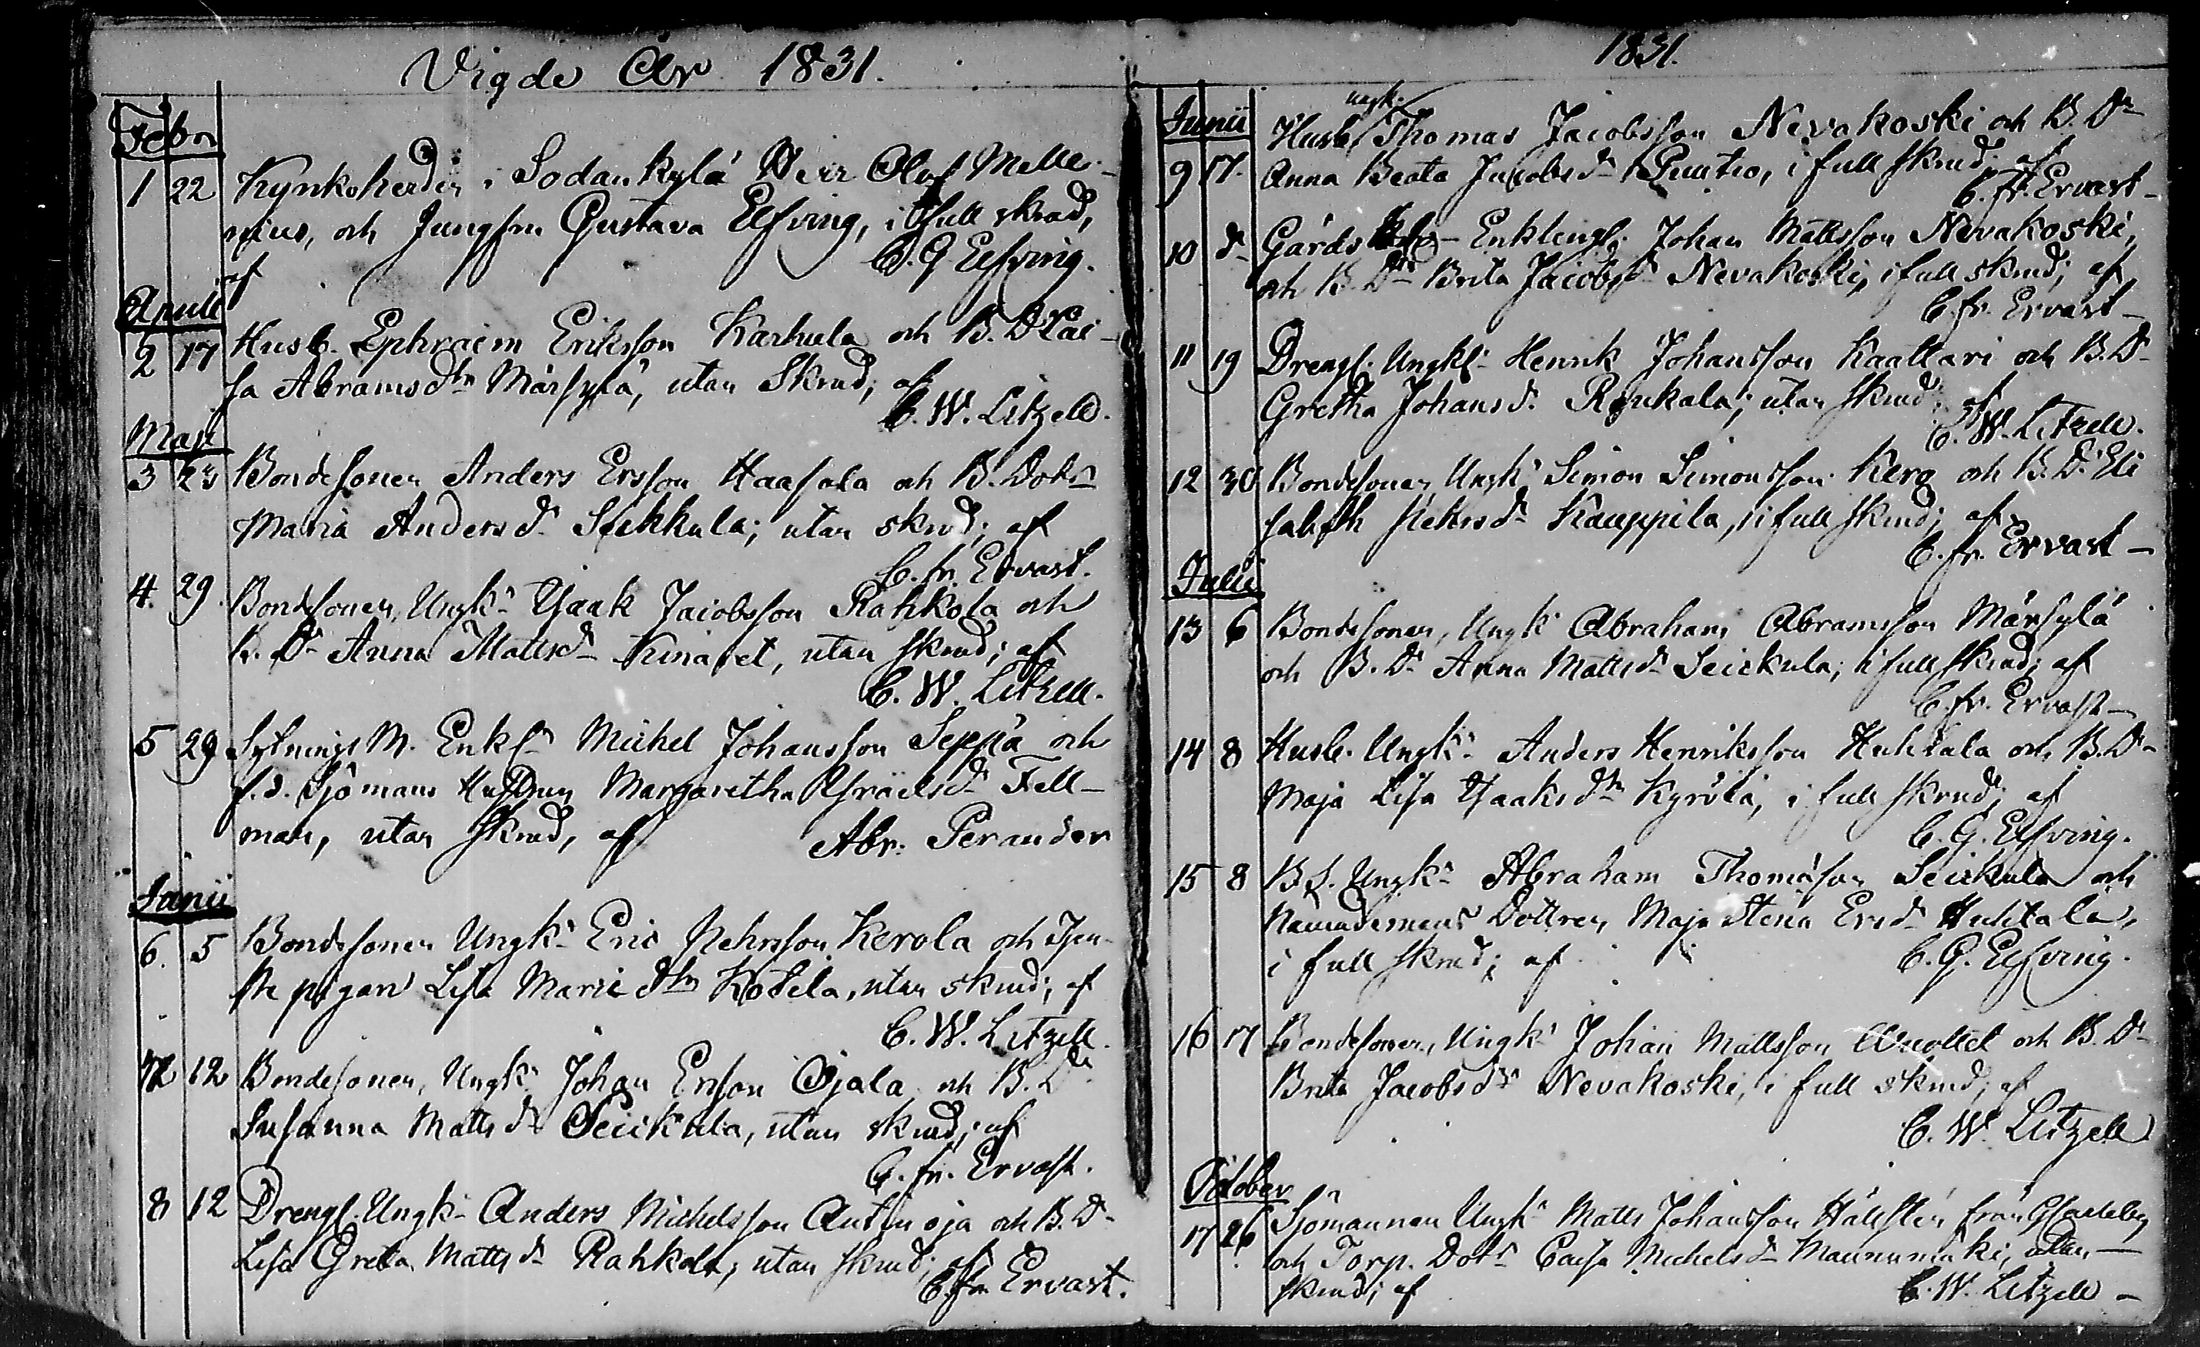 Vigde År 1831.
Febr
1 22 Kyrkoherden i Sodankylä Herr Olof Melle-
nius, och Jungfru Gustava Elfving, i full skrud,
af C. G. Elfving.
Aprill
2 17 Husb. Ephraim Eriksson Karhula och B. Dr Cai-
sa Abramsdtr Märsylä, utan Skrud; af
C. W. Litzell.
Maji
3 23 Bondesonen Anders Ersson Haasala och B. Dotr
Maria Andersdr Siekkula; utan skrud; af
C. fr. Ervast.
4. 29. Bondesonen, Ungkn Isaak Jacobsson Rahkola och
B. Dr Anna Mattsdr Kinaret, utan skrud; af
C. W. Litzell.
5 29 Sytnings M. Enkl. Michel Johansson Seppä och
f. d. Sjömans Hustrun Margaretha Israelsdr Fell-
man, utan skrud, af Abr. Perander
Junii
6. 5 Bondesonen Ungkn Eric Pehrsson Kerola och Tjen-
ste pigan Lisa Mariedtr Kotila, utan skrud; af
C. W. Litzell.
7 12 Bondesonen, Ungkn Johan Ersson Ojala och B. Dr
Susanna Mattsdr Seickula, utan skrud; af
C. fr. Ervast.
8 12 Drengl. Ungkn Anders Michelsson Autinoja och B. Dr
Lisa Greta Mattsdr Rahkola, utan skrud; af
C. fr. Ervast.
1831.
Junii
ungk.
Husb. Thomas Jacobsson Nivakoski och B. Dr
9 17. Anna Beata Jacobsdr Puutio, i full skrud; af
C. fr. Ervast
10 d Gårds Enklingl. Johan Mattsson Nivakoski,
och B. Dr Brita Jacobsdr Nevakoski, i full skrud; af
C. fr. Ervast
11 19 Drengl. Ungkl. Henrik Johansson Kaattari och B. Dr
Gretha Johansdr Roukala; utan skrud; af
C. W. Litzell.
12 30 Bondesonen Ungkn Simon Simonsson Kero och B. Dr Eli
sabeth Pehrsdr Kauppila, i full skrud; af
C. fr. Ervast
Julii
13 6 Bondesonen, Ungkn Abraham Abramsson Märsylä
och B. Dr Anna Mattsdr Seickula; i full skrud; af
C. fr. Ervast
14 8 Husb. Ungkn Anders Henriksson Huhtala och B. Dr
Maja Lisa Isaaksdtr Kyrölä, i full skrud; af
C. G. Elfving.
15 8 B. S. Ungkn Abraham Thomasson Seickula och
Nämndemans Dottren Maja Stena Ersdr Huhtala,
i full skrud; af C. G. Elfving.
16 17 Bondesonen, Ungkn Johan Mattsson och B. Dr
Brita Jacobsdr Nevakoski, i full skrud; af
C. W. Litzell
October
17 26 Sjömannen Ungkn Matts Johansson Hällsten från Gl. Carleby
och Torp. Dotr Caisa Michelsdr Maununmäki, utan
skrud; af C. W. Litzell